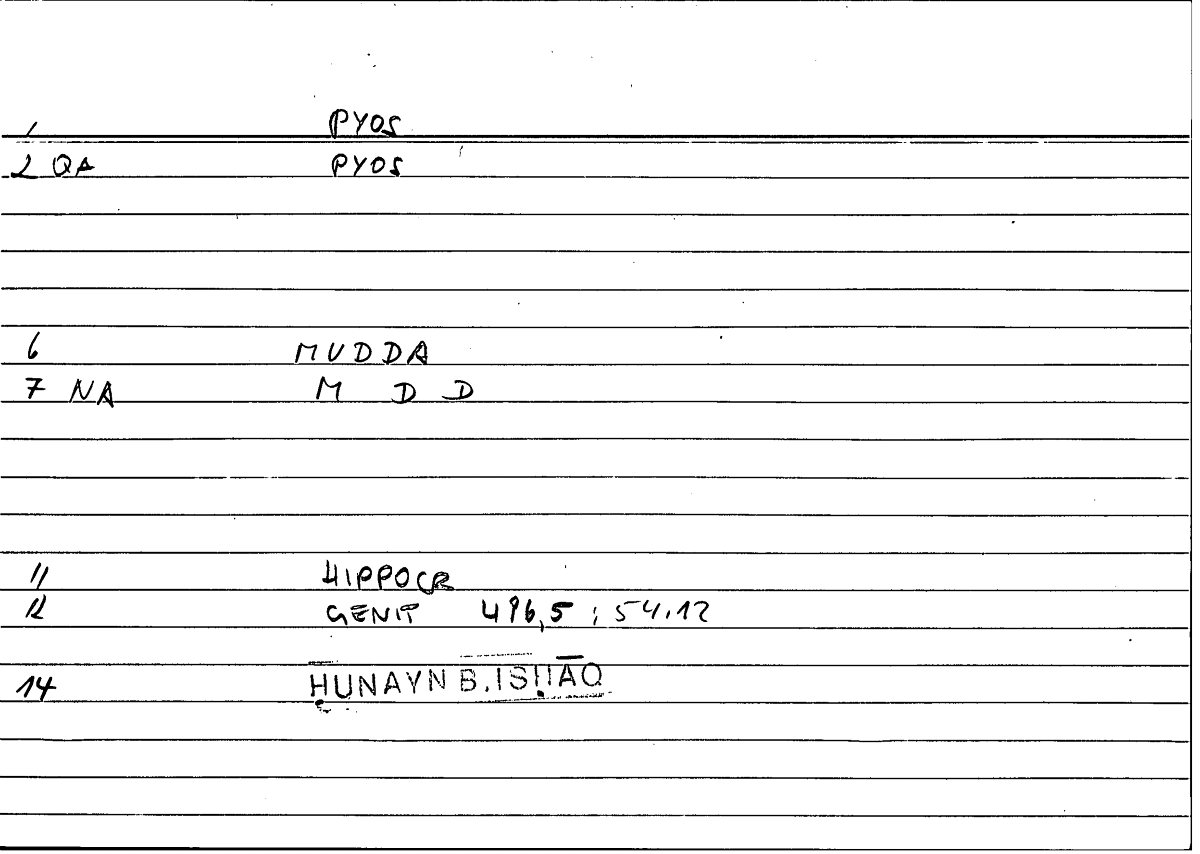 1 PYOS
2 QA PYOS
6 MUDDA
7 NA M D D
11 HIPPOCR
12 GENIT 496,5 ; 54,12
14 ḤUNAYN B. ISḤĀQ